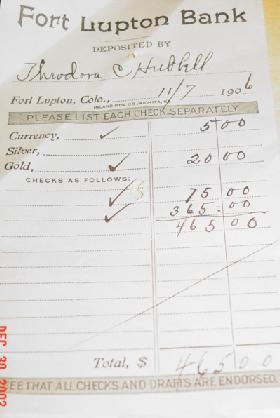 Fort Lupton Bank
DEPOSITED BY
Theodora C Hubbell
Fort Lupton, Colo., 11/7 1906
PLEASE LIST EACH CHECK SEPARATELY
Currency, 5 00
Silver,
Gold, 20 00
CHECKS AS FOLLOWS:
75 00
365 00
465 00
Total, $ 465 00
SEE THAT ALL CHECKS AND DRAFTS ARE ENDORSED.
DEC 30 2002